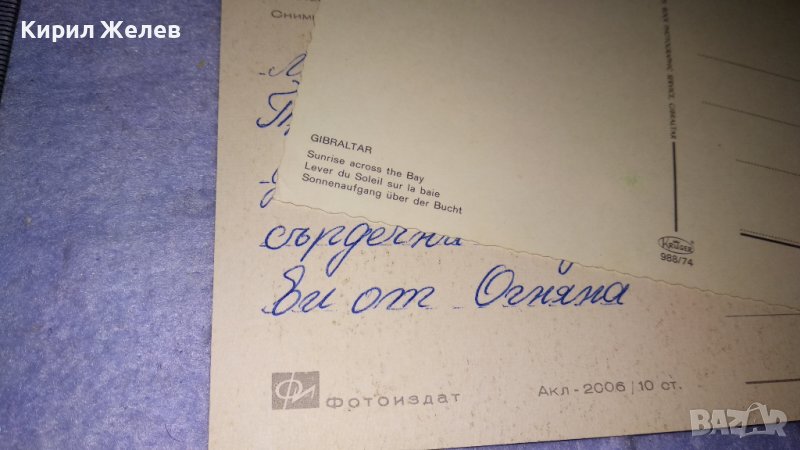 Кирил Желев
Сним
GIBRALTAR
Sunrise across the Bay
Lever du Soleil sur la baie
Sonnenaufgang über der Bucht
PHOTOGRAPHIC SERVICE, GIBRALTAR
KRÜGER
988/74
сърдечни
Ви от Огняна
Фотоиздат
Акл-2006/10 ст.
BAZAR